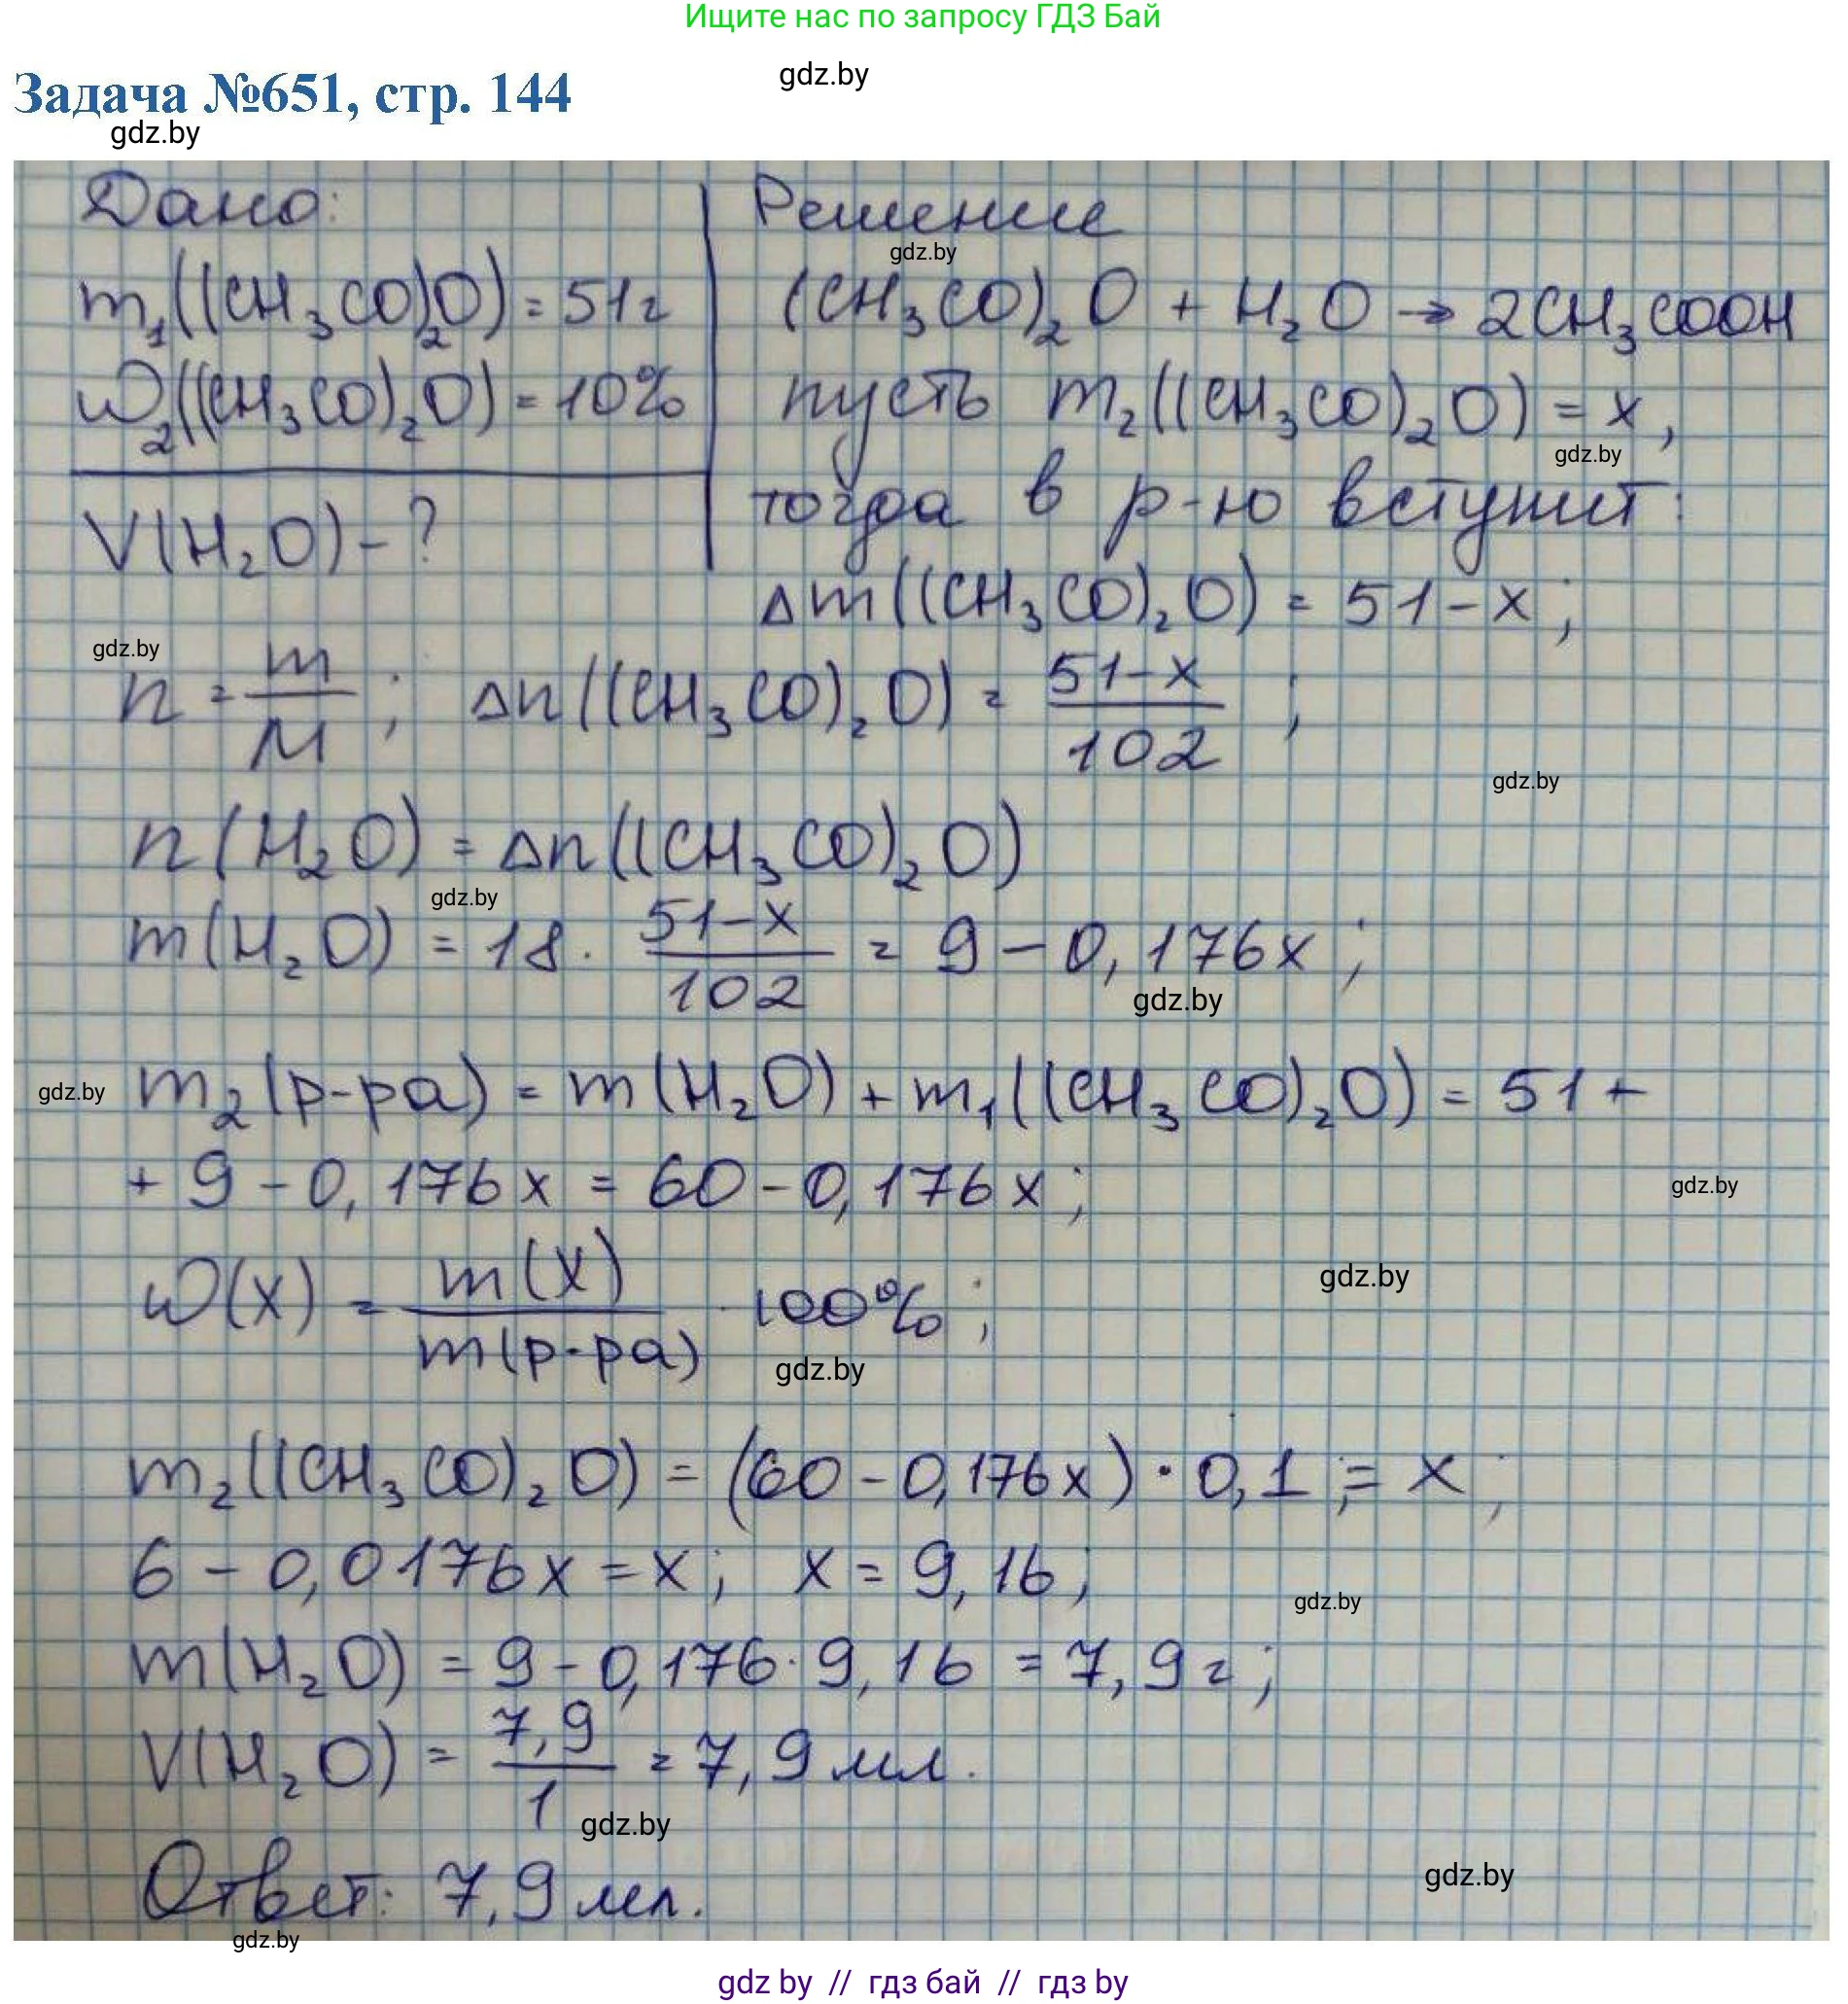 Ищите нас по запросу ГДЗ Бай
gdz.by
Задача №651, стр. 144
gdz.by
Дано:
m₁((CH₃CO)₂O) = 51г
ω₂((CH₃CO)₂O) = 10%
V(H₂O) - ?
Решение
gdz.by
(CH₃CO)₂O + H₂O → 2CH₃COOH
пусть m₂((CH₃CO)₂O) = x,
gdz.by
тогда в р-ю вступит:
Δm((CH₃CO)₂O) = 51-x;
gdz.by
n = m/M; Δn((CH₃CO)₂O) = (51-x)/102;
gdz.by
n(H₂O) = Δn((CH₃CO)₂O)
gdz.by
m(H₂O) = 18 · (51-x)/102 = 9 - 0,176x;
gdz.by
gdz.by
m₂(р-ра) = m(H₂O) + m₁((CH₃CO)₂O) = 51 +
+ 9 - 0,176x = 60 - 0,176x;
gdz.by
ω(x) = m(x)/m(р-ра) · 100%;
gdz.by
gdz.by
m₂((CH₃CO)₂O) = (60 - 0,176x) · 0,1 ;= x;
6 - 0,0176x = x; x = 9,16;
gdz.by
m(H₂O) = 9 - 0,176 · 9,16 = 7,9 г;
V(H₂O) = 7,9/1 = 7,9 мл.
gdz.by
gdz.by
Ответ: 7,9 мл.
gdz.by
gdz by // гдз бай // гдз by